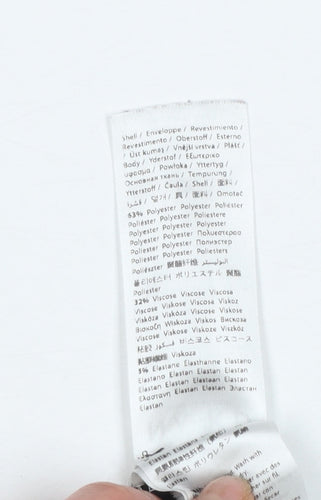 Shell / Enveloppe / Revestimiento /
Revestimento / Oberstoff / Esterno
/ Üst kumaş / Vnější vrstva / Plášť /
Body / Yderstof / Εξωτερικό
ύφασμα / Powłoka / Yttertyg /
Основная ткань / Tempurung /
Ytterstoff / Čaula / Shell / 塗料 /
قشرة / 덮개 / 貝 / 塗料 / Omotač
63% Polyester Polyester Polyéster
Poliéster Polyester Poliestere
Polyester Polyester Polyester
Polyester Polyester Πολυεστέρα
Poliester Polyester Полиэстер
Poliester Polyester Poliesteris
Poliészter 聚酯纤维 البوليستر
폴리에스터 ポリエステル 聚酯
Poliester
32% Viscose Viscose Viscosa
Viscose Viskose Viscosa Viskoz
Viskóza Viskóza Viscose Viskose
Βισκόζη Wiskoza Viskos Вискоза
Viskosa Viskose Viskoze Viszkóz
粘胶 فسكوز 비스코스 ビスコース
Viskoza
5% Elastane Elasthanne Elastano
Elastano Elastan Elastan Elastan
Elastan Elastan Elastan Elastan
Ελαστάνη Elastan Elastan Эластан
Elastan
ポリウレタン
Wash with
avec des